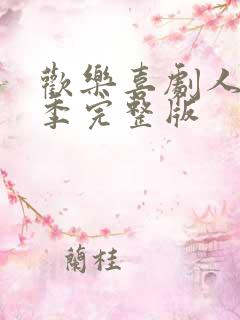 歡樂喜劇人
季完整版
蘭桂